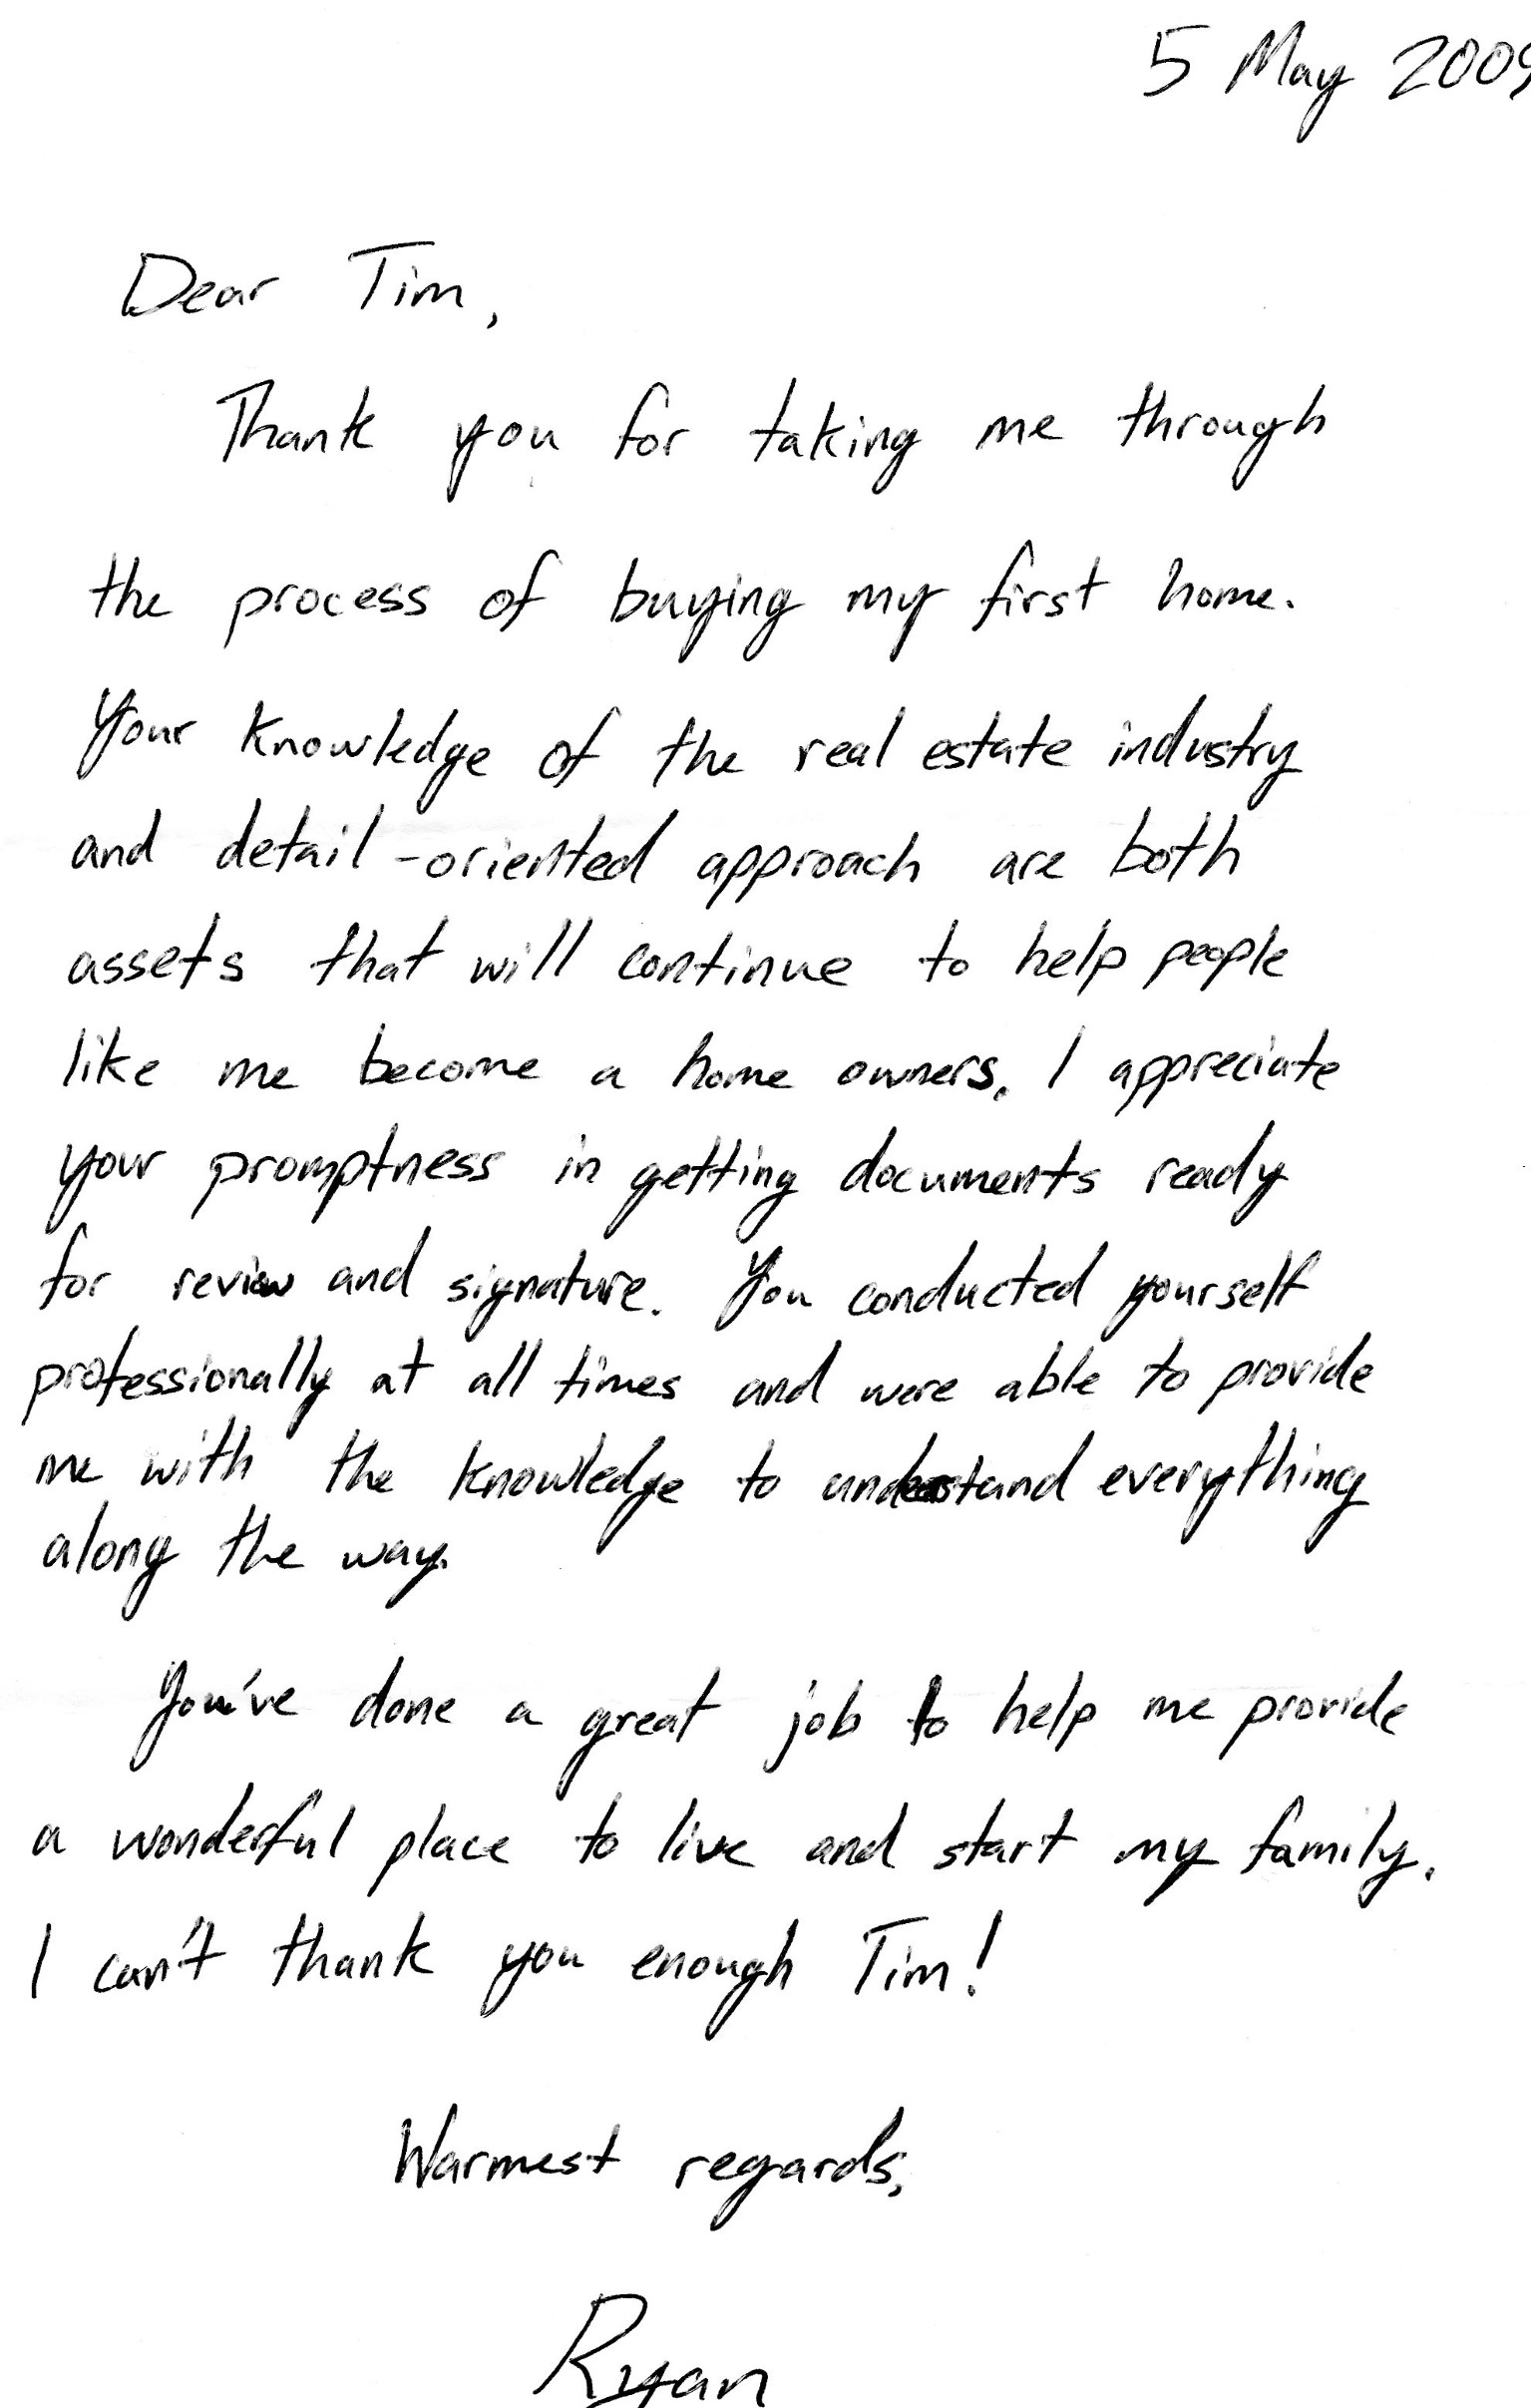 5 May 2009
Dear Tim,
Thank you for taking me through
the process of buying my first home.
Your knowledge of the real estate industry
and detail-oriented approach are both
assets that will continue to help people
like me become a home owners. I appreciate
your promptness in getting documents ready
for review and signature. You conducted yourself
professionally at all times and were able to provide
me with the knowledge to understand everything
along the way.
You've done a great job to help me provide
a wonderful place to live and start my family.
I can't thank you enough Tim!
Warmest regards,
Ryan